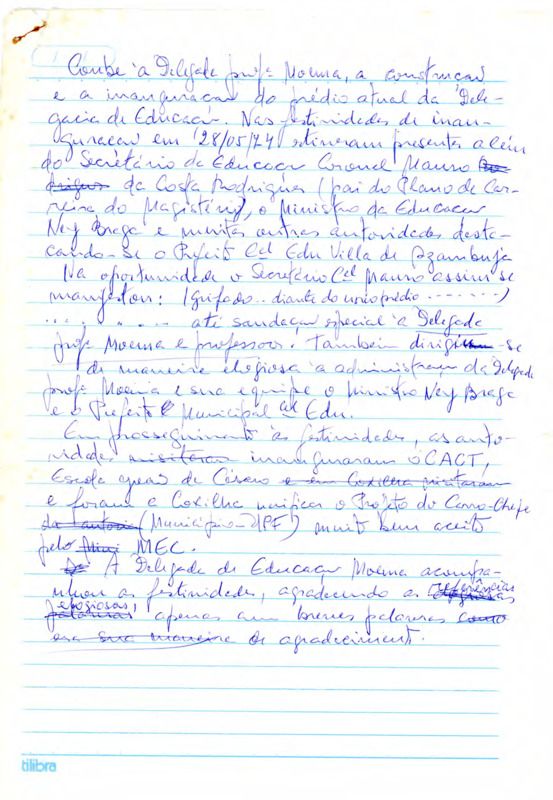 Coube à Delegada profª Moema, a construcao
e a inauguracao do prédio atual da Dele-
gacia de Educacao. Nas festividades de inau-
guracao em 28/05/74 estiveram presentes além
do Secretário da Educacao Coronel Mauro
da Costa Rodrigues (pai do Plano de Car-
reira do Magistério), o Ministro da Educacao
Ney Braga e muitas outras autoridades desta-
cando-se o Prefeito Cel Edu Villa de Azambuja
Na oportunidade o Secretário Cel Mauro assim se
manifestou: (Grifado.. diante do novo prédio .......)
......... até saudacao especial à Delegada
profª Moema e professores. Também dirigiram-se
de maneira elogiosa à administracao da Delegada
profª Moema e sua equipe o Ministro Ney Braga
e o Prefeito Municipal Cel Edu.
Em prosseguimento às festividades, as auto-
ridades visitaram inauguraram o CACT,
Escola geral de Cásero e em Coxilha visitaram
e foram a Coxilha verificar o Projeto do Carro-Chefe
da (Município-UPF) muito bem aceito
pelo MEC.
A Delegada de Educacao Moema acompa-
nhou as festividades, agradecendo as referências
elogiosas, palavras apenas com breves palavras como
era sua maneira de agradecimento.
tilibra